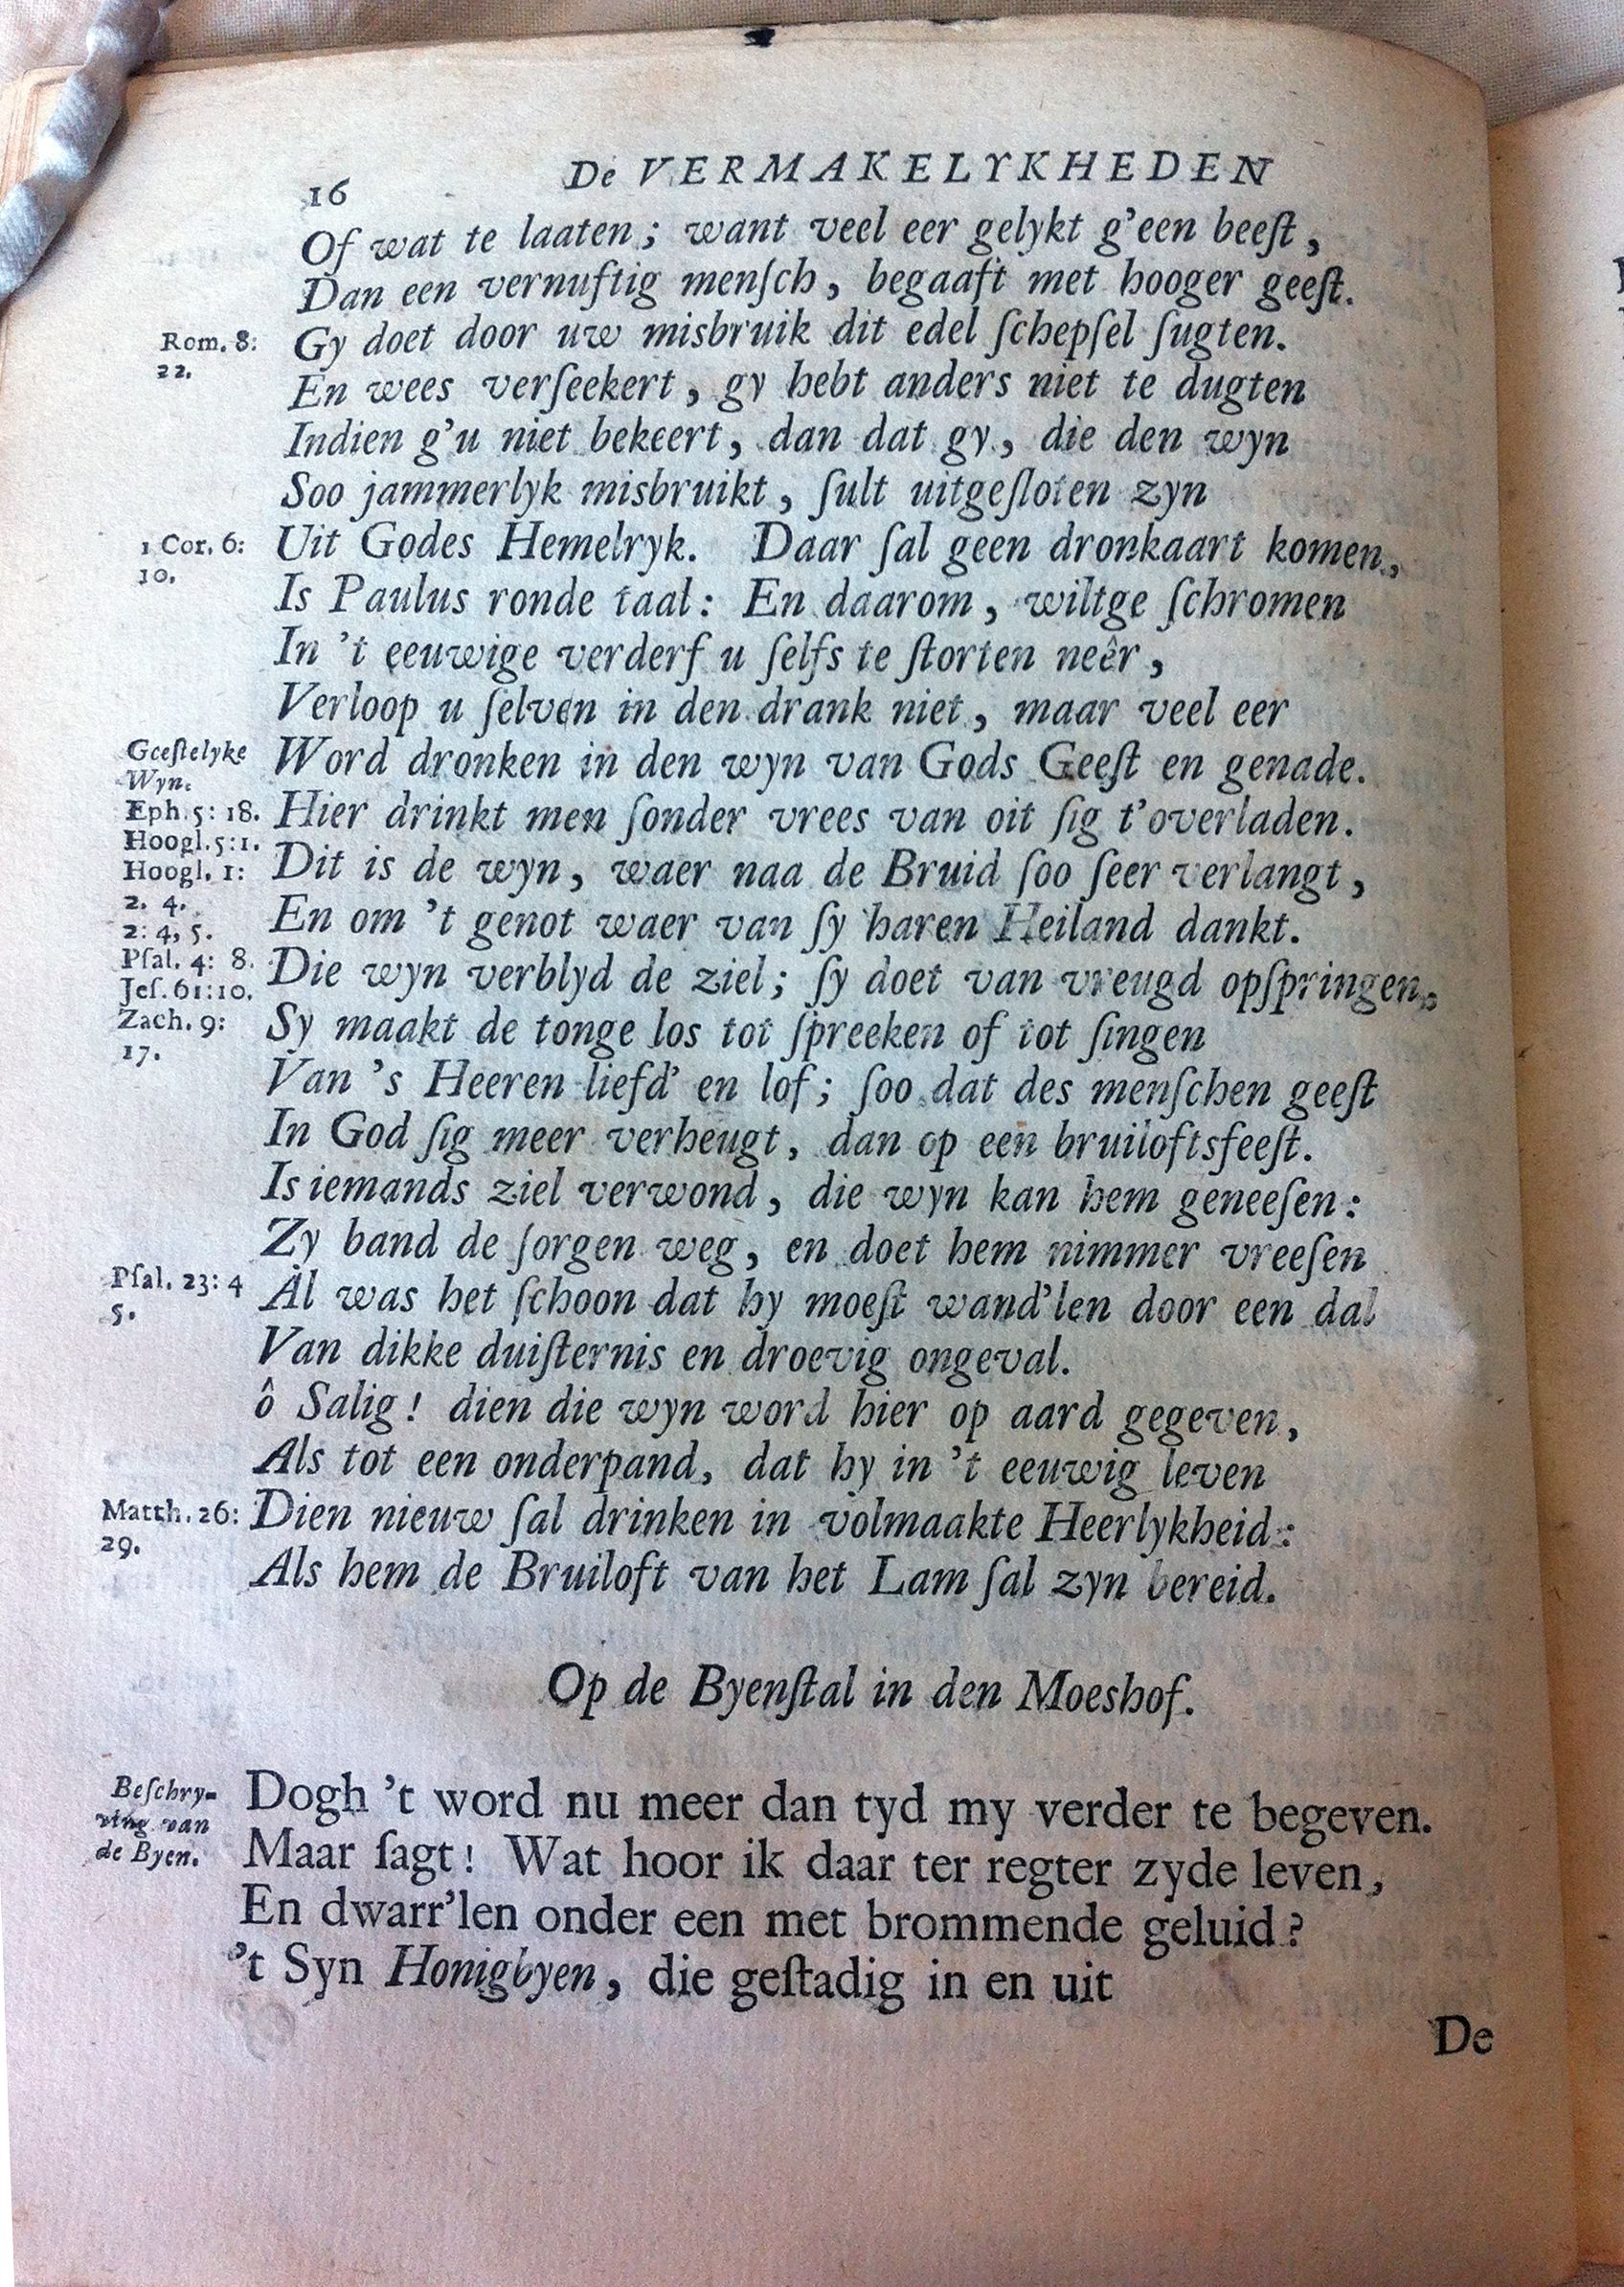 16 De VERMAKELYKHEDEN
Of wat te laaten; want veel eer gelykt g'een beeſt,
Dan een vernuftig menſch, begaaft met hooger geeſt.
Rom. 8: 22.
Gy doet door uw misbruik dit edel ſchepſel ſugten.
En wees verſeekert, gy hebt anders niet te dugten
Indien g'u niet bekeert, dan dat gy, die den wyn
Soo jammerlyk misbruikt, ſult uitgeſloten zyn
1 Cor. 6: 10.
Uit Godes Hemelryk. Daar ſal geen dronkaart komen,
Is Paulus ronde taal: En daarom, wiltge ſchromen
In 't eeuwige verderf u ſelfs te ſtorten neêr,
Verloop u ſelven in den drank niet, maar veel eer
Geeſtelyke
Wyn.
Word dronken in den wyn van Gods Geeſt en genade.
Eph. 5: 18.
Hier drinkt men ſonder vrees van oit ſig t'overladen.
Hoogl. 5:1.
Hoogl. 1:
Dit is de wyn, waer naa de Bruid ſoo ſeer verlangt,
2. 4.
2: 4, 5.
En om 't genot waer van ſy haren Heiland dankt.
Pſal. 4: 8.
Jeſ. 61:10.
Die wyn verblyd de ziel; ſy doet van vreugd opſpringen,
Zach. 9:
17.
Sy maakt de tonge los tot ſpreeken of tot ſingen
Van 's Heeren liefd' en lof; ſoo dat des menſchen geeſt
In God ſig meer verheugt, dan op een bruiloftsfeeſt.
Is iemands ziel verwond, die wyn kan hem geneeſen:
Zy band de ſorgen weg, en doet hem nimmer vreeſen
Pſal. 23: 4
5.
Al was het ſchoon dat hy moeſt wand'len door een dal
Van dikke duiſternis en droevig ongeval.
ô Salig! dien die wyn word hier op aard gegeven,
Als tot een onderpand, dat hy in 't eeuwig leven
Matth. 26:
29.
Dien nieuw ſal drinken in volmaakte Heerlykheid:
Als hem de Bruiloft van het Lam ſal zyn bereid.
Op de Byenſtal in den Moeshof.
Beſchry-
ving van
de Byen.
Dogh 't word nu meer dan tyd my verder te begeven.
Maar ſagt! Wat hoor ik daar ter regter zyde leven,
En dwarr'len onder een met brommende geluid?
't Syn Honigbyen, die geſtadig in en uit
De